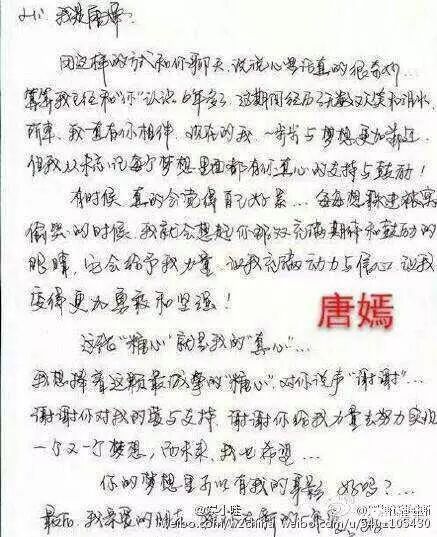 Hi! 我是唐嫣.
用这样的方式和你聊天,说说心里话真的很奇妙…
算算我已经和“你”认识6年多了,这期间经历了无数欢笑和泪水,
所幸,我一直有你相伴,现在的我,一步步与梦想更加靠近,
但我从未忘记每个梦想里面都有你真心的支持与鼓励!
有时候,真的会觉得自己好累…每每想躲进被窝
偷哭的时候,我就会想起你那双充满期待和鼓励的
眼睛,它会给予我力量,让我充满动力与信心,让我
变得更加勇敢和坚强!
唐嫣
这记“糖心”就是我的“真心”…
我想捧着这颗最诚挚的“糖心”,对你说声“谢谢”…
谢谢你对我的爱与支持,谢谢你给我力量去努力实现
一个又一个梦想,而未来,我也希望…
你的梦想里可以有我的身影,好吗?…
最后,我亲爱的
weibo.com/wzchina weibo.com/340u105430